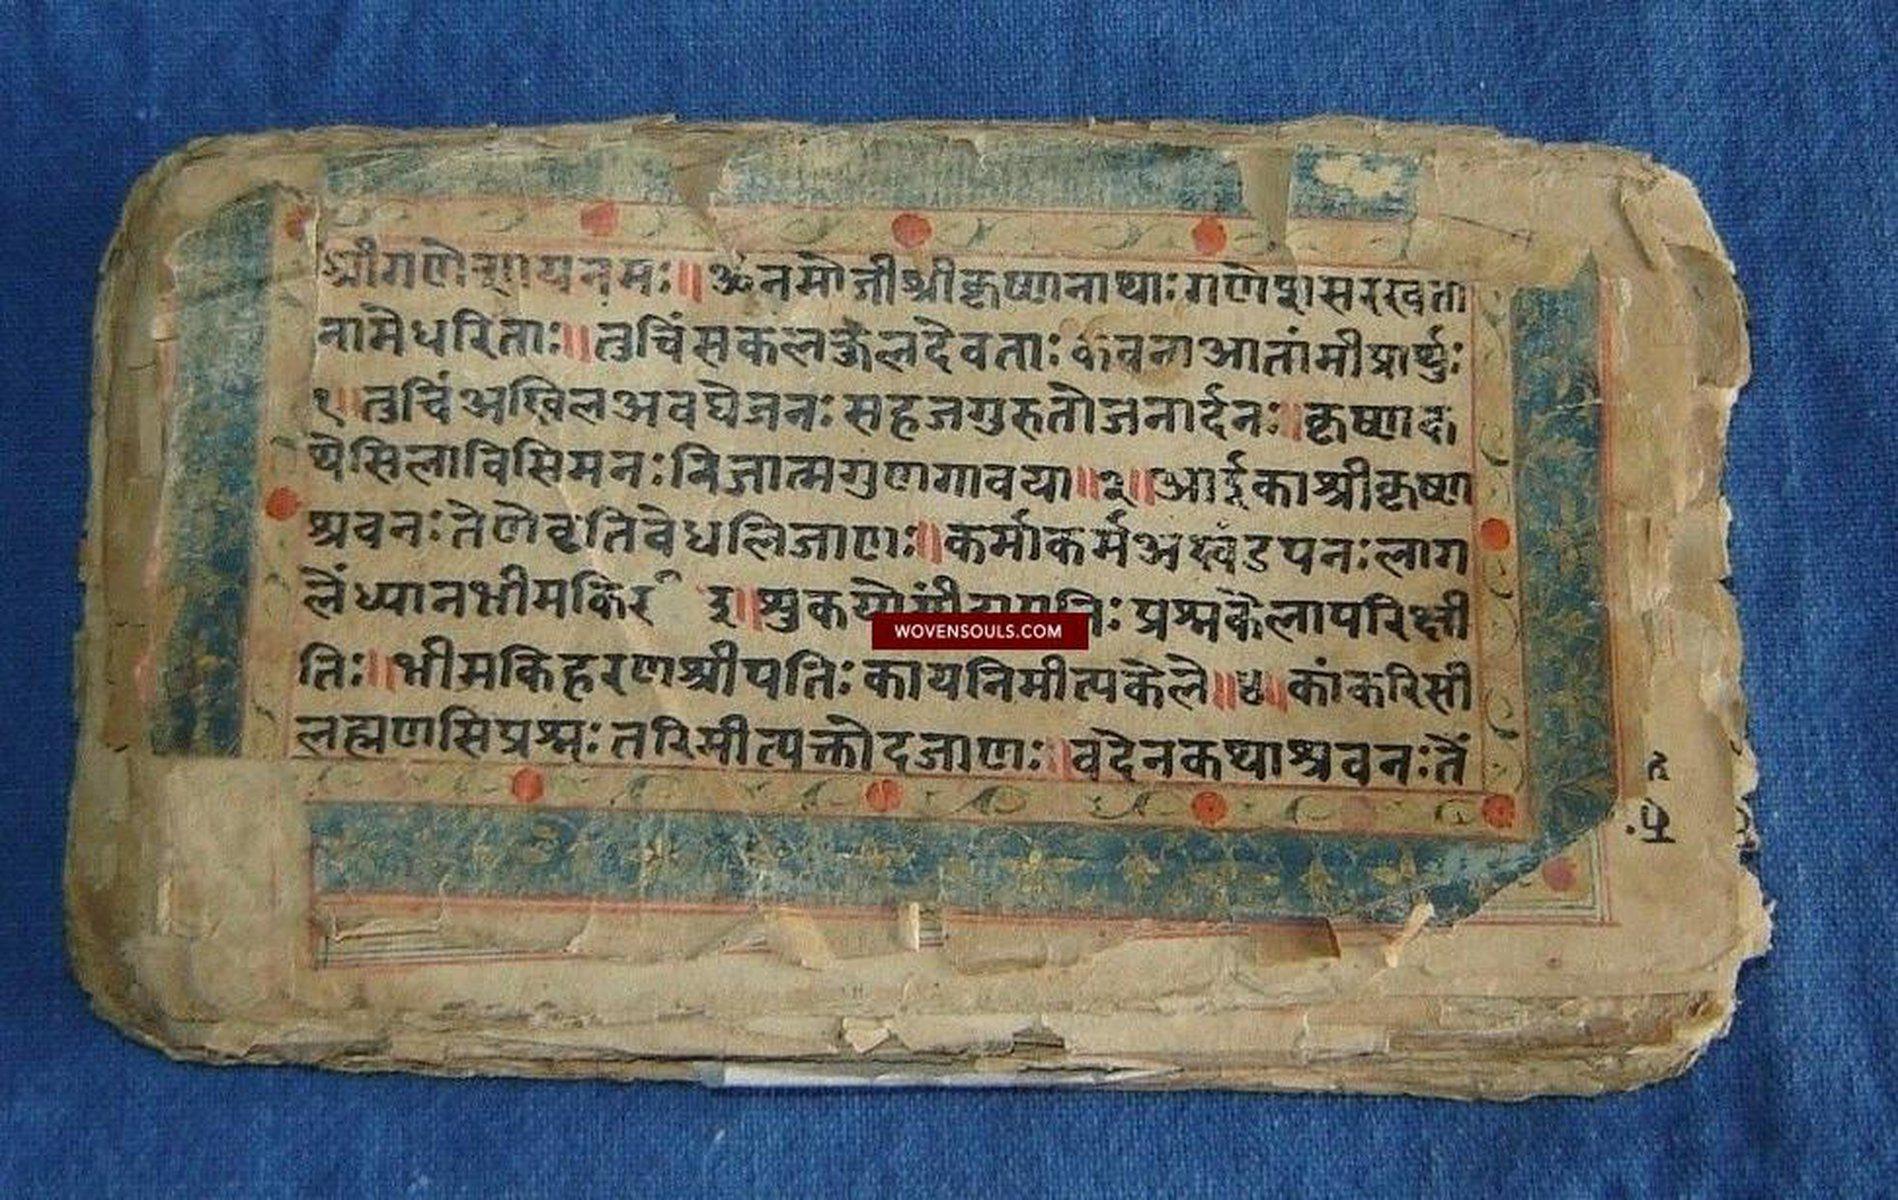 श्रीगणेशायनमः॥ॐनमोजीश्रीकृष्णनाथाः गणेशसरस्वता
नामेधरिताः॥तुचिंसकलकुलदेवताः कवनाआतांमीप्रार्थुः
१॥तुचिंअखिलअवघेजनः सहजगुरुतोजनार्दनः॥कृष्णद
येसिलाविसिमनः निजात्मगुणगावया॥२॥आईकाश्रीकृष्ण
श्रवनः तेणेवृतिवेधलिजाणः॥कर्माकर्मअखंडपनः लाग
लैंध्यानभीमकिस ३॥श्रुकयोगी प्रश्नकेलापरिक्षी
तिः॥भीमकिहरणश्रीपतिः कायनिमीत्यकेले॥४॥कांकरिसी
लह्मणसिप्रश्नः तरिमीत्यक्तोदजाणः॥वदेनकथाश्रवनः तें
WOVENSOULS.COM